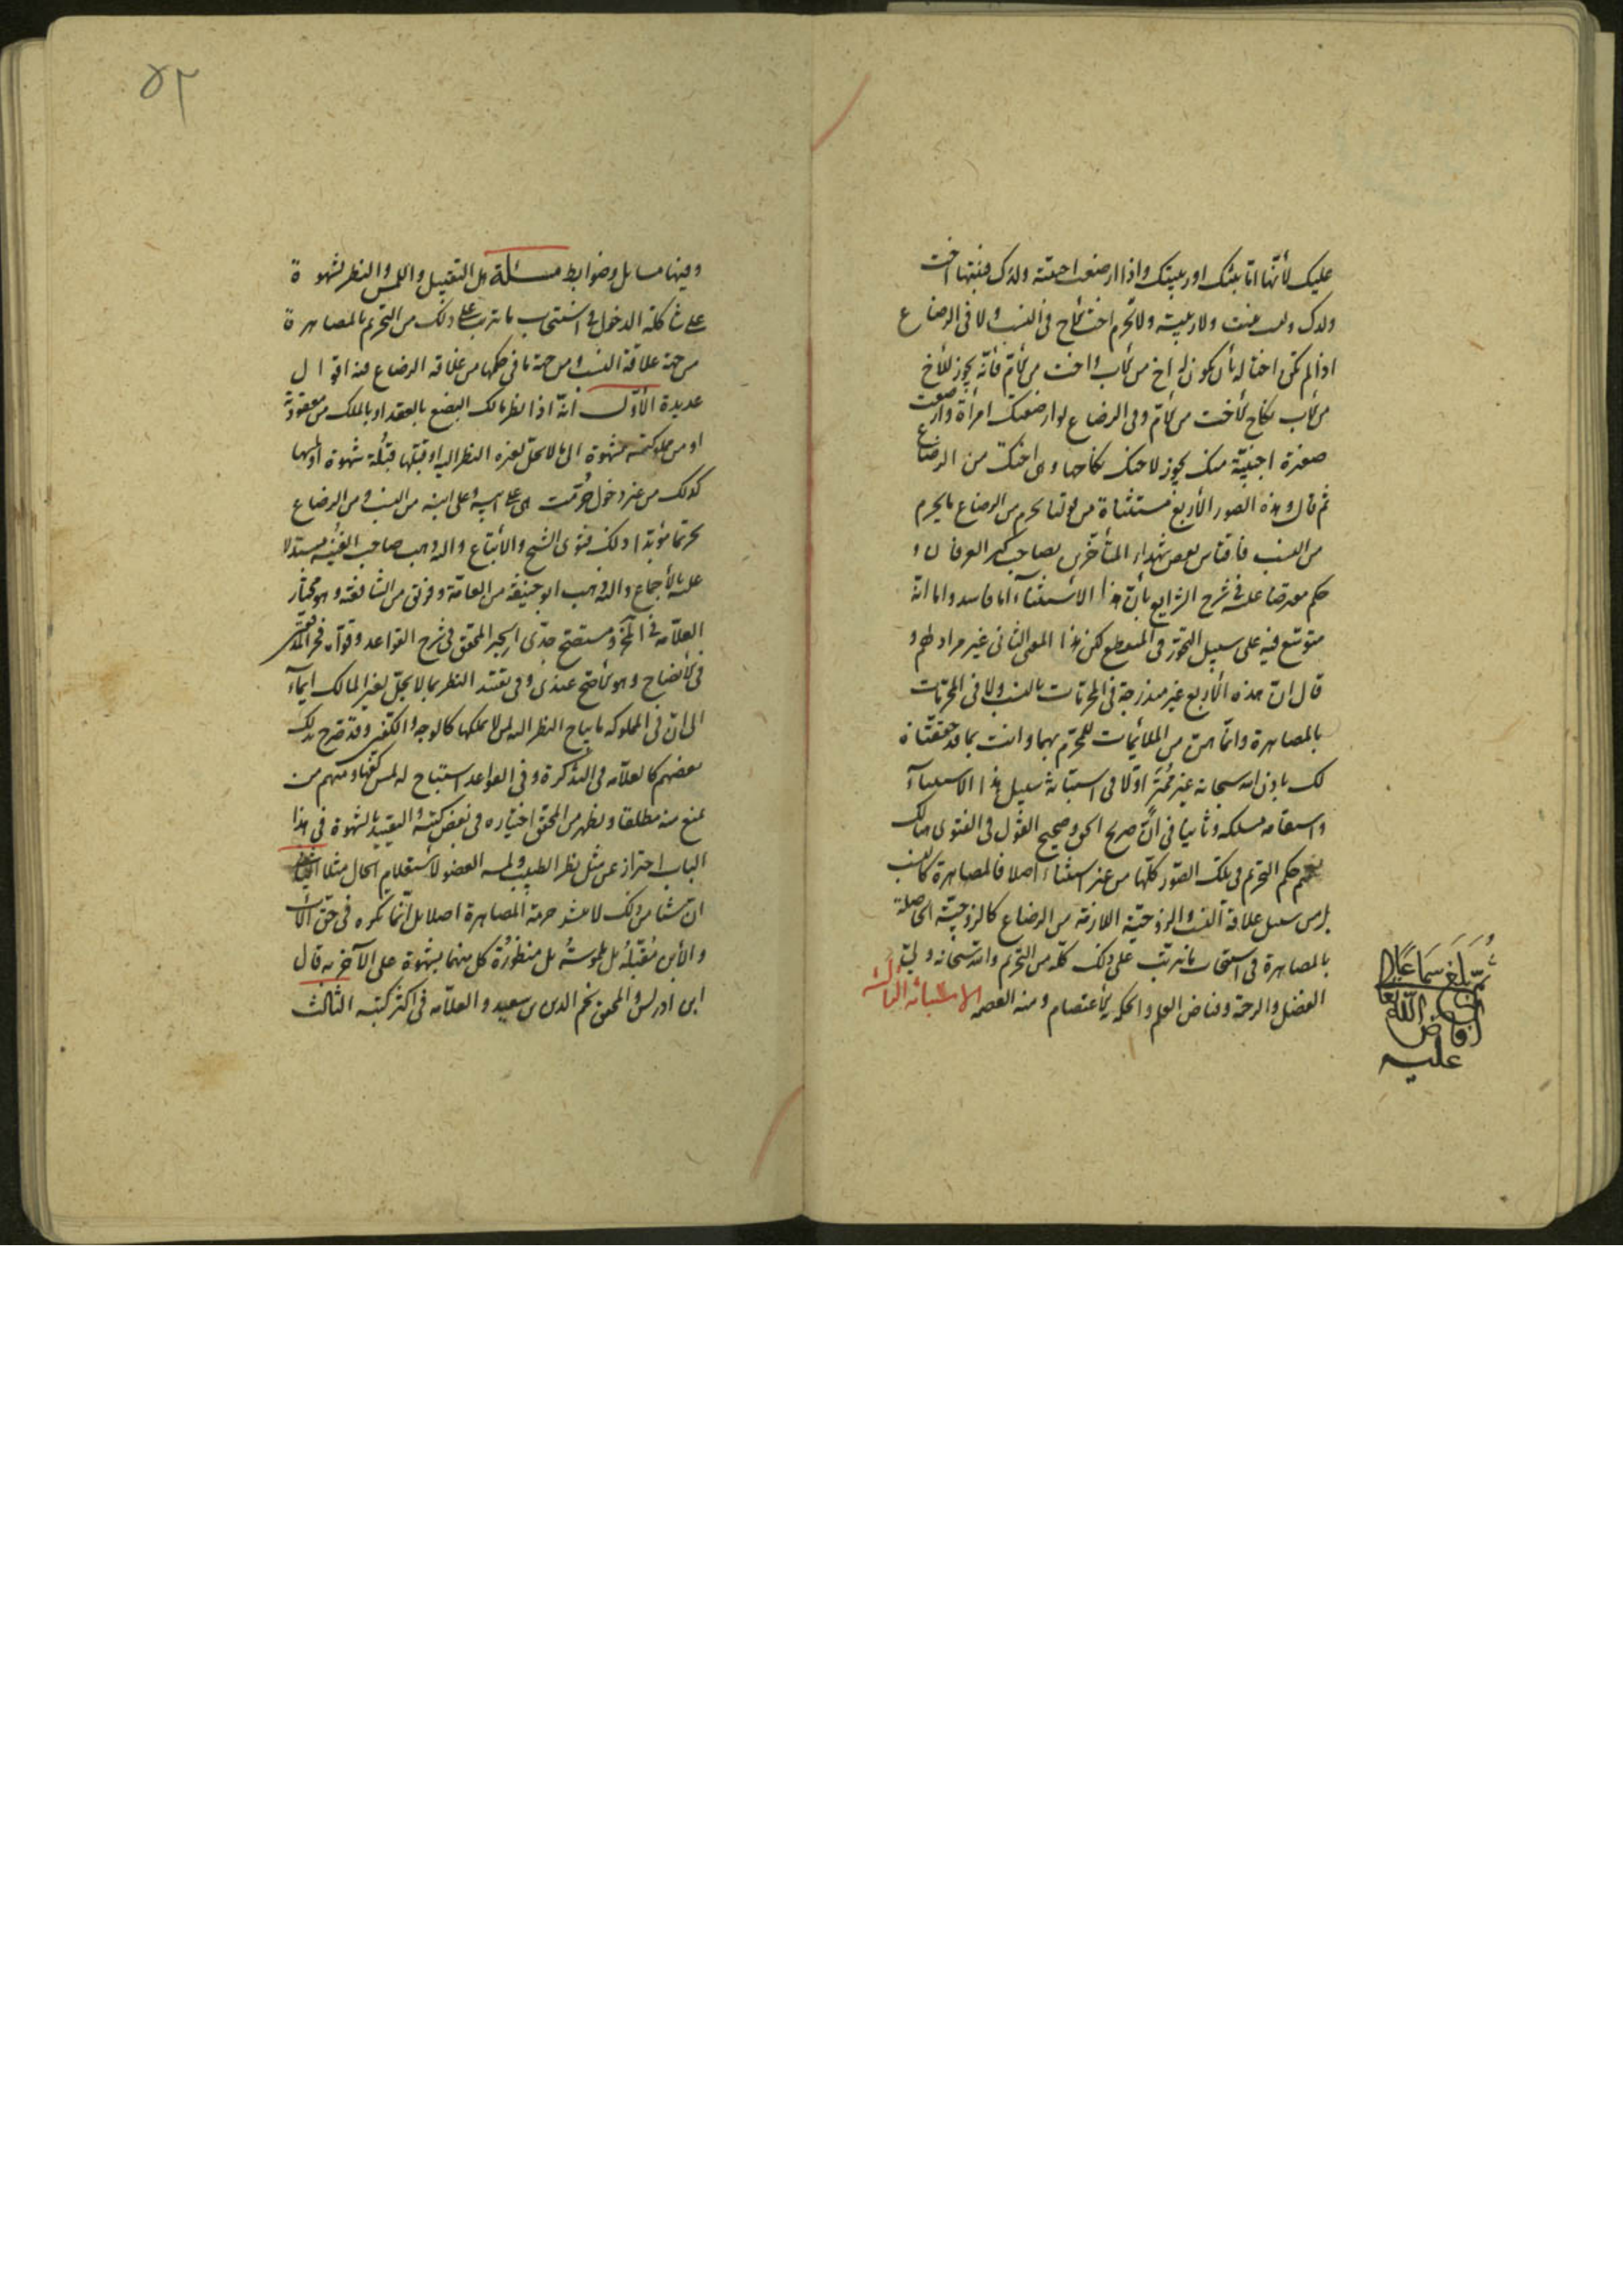 عليك لأنها اما بنتك او ربيبتك واذا ارضعت اجنبية ولدك فبنتها اخت
ولدك وليست ببنت ولا ربيبة ولا تحرم اخت الأخ في النسب ولا في الرضاع
اذا لم تكن اختا له بأن يكون له اخ من الأب واخت من الأم فانه يجوز للأخ
من الأب نكاح الأخت من الأم وفي الرضاع لو ارضعتك امرأة وارضعت
صغيرة اجنبية منك يجوز لاخيك نكاحها وهي اختك من الرضاع
ثم قال وهذه الصور الأربع مستثناة من قولنا يحرم من الرضاع ما يحرم
من النسب فاقتاس بعض شهداء المتأخرين بصاحب كنز العرفان و
حكم معرضا عليه في شرح الشرايع بأن هذا الاستثناء اما فاسد واما انه
متوسع فيه على سبيل التجوز في المنقطع لكن هذا المعنى الثاني غير مراد لهم و
قال ان هذه الأربع غير مندرجة في المحرمات بالنسب ولا في المحرمات
بالمصاهرة وانما هن من الملائمات للمحرم بهما وانت بما قد حققناه
لك باذن الله سبحانه غير ممتر اولا في استبانة سبيل هذا الاستثناء
واستقامة مسلكه وثانيا في ان صريح الحق وصحيح القول في الفتوى هنالك
تعميم حكم التحريم في تلك الصور كلها من غير استثناء اصلا فالمصاهرة كالنسب
بل من سبيل علاقة النسب والزوجية اللازمة من الرضاع كالزوجية الحاصلة
بالمصاهرة في استتباب ما يترتب على ذلك كله من التحريم والله سبحانه ولي
الفضل والرحمة وفياض العلم والحكمة به الاعتصام ومنه العصمة الاستبانة الثالثة
ثم بلغ سماعا
افاض الله تعالى
عليه
٥٢
وفيها مسايل وضوابط مسئلة هل التقبيل واللمس والنظر لشهوة
على شاكلة الدخول في استتباب ما يترتب على ذلك من التحريم بالمصاهرة
من جهة علاقة النسب ومن جهة ما في حكمها من علاقة الرضاع فيه اقوال
عديدة الأول أنه اذا نظر مالك البضع بالعقد او بالملك من معقودته
او من مملوكته بشهوة الى ما لا يحل لغيره النظر اليه او قبلها قبلة شهوة او لمسها
كذلك من غير دخول حرمت هي على ابيه وعلى ابنه من النسب ومن الرضاع
تحريما مؤبدا وذلك فتوى الشيخ والأتباع واليه ذهب صاحب الغنية مستدلا
عليه بالأجماع واليه ذهب ابو حنيفة من العامة وفريق من الشافعية وهو مختار
العلامة في المختلف ومستصح جدي الحبر المحقق في شرح القواعد وقواه فخر المدققين
في الأيضاح وهو الأصح عندي وفي تقييد النظر بما لا يحل لغير المالك ايماء
الى ان في المملوكة ما يباح النظر اليه لمن لا يملكها كالوجه والكفين وقد صرح بذلك
بعضهم كالعلامة في التذكرة وفي القواعد استباح له لمس كفها ومنهم من
يمنع منه مطلقا ويظهر من المحقق اختياره في بعض كتبه والتقييد بالشهوة في هذا
الباب احتراز عن مثل نظر الطبيب ولمسه العضو لاستعلام الحال مثلا الثاني
ان شيئا من ذلك لا ينشر حرمة المصاهرة اصلا بل انما تكره في حق الأب
والأبن مقبلة بل ملموسة بل منظورة كل منهما بشهوة على الآخر به قال
ابن ادريس والمحقق نجم الدين بن سعيد والعلامة في اكثر كتبه الثالث